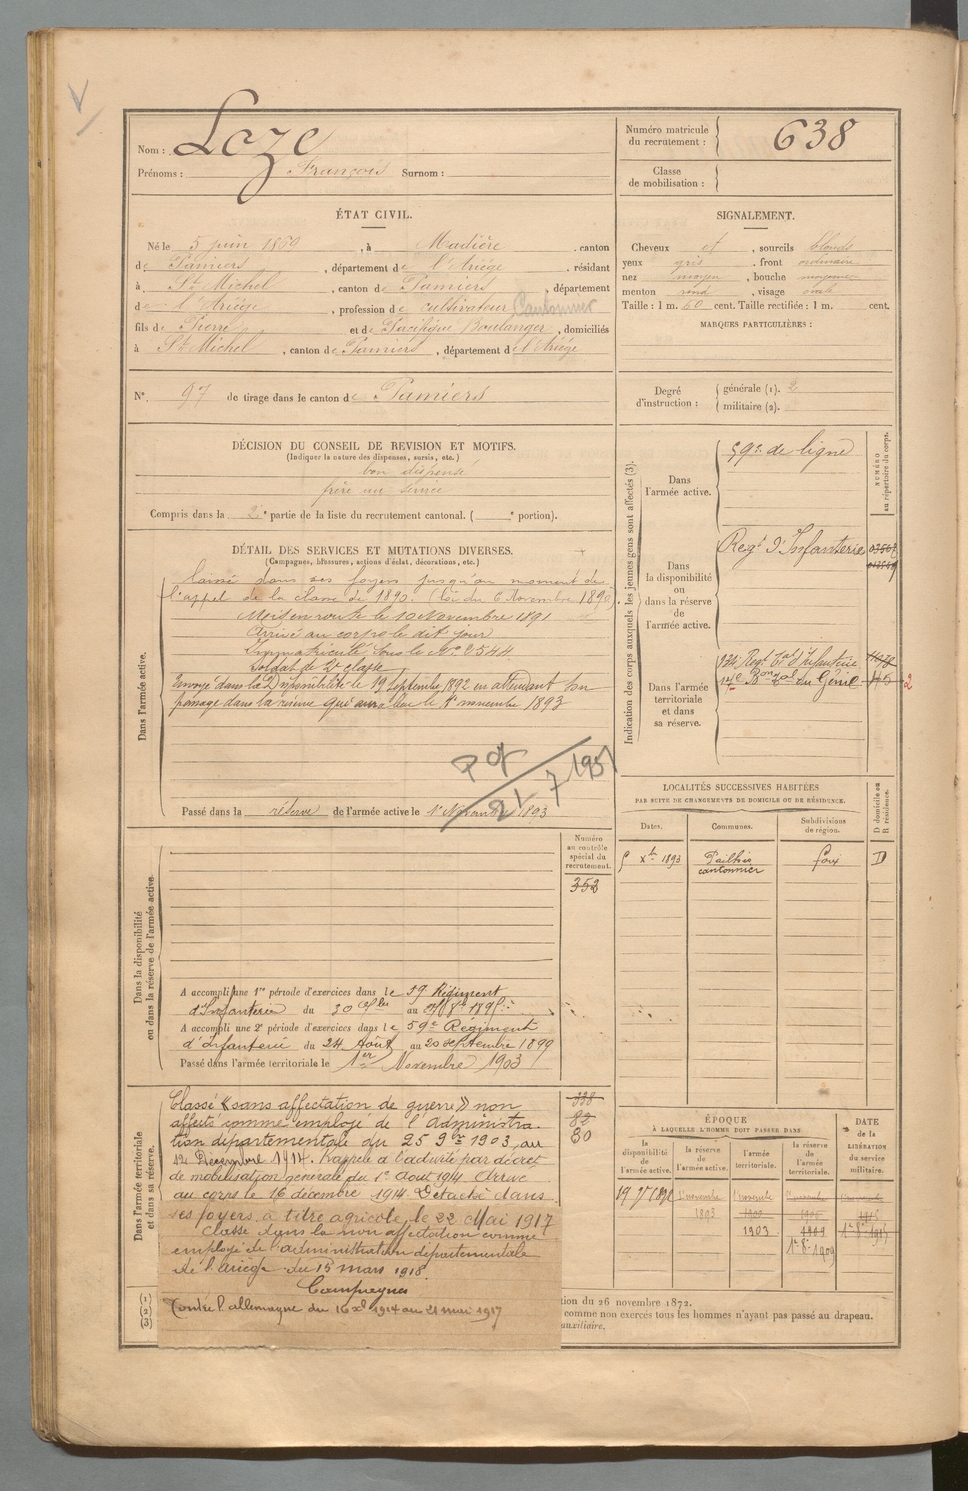 Nom : Loze
Prénoms : François Surnom :
Numéro matricule du recrutement : 638
Classe de mobilisation :
ÉTAT CIVIL.
Né le 5 juin 1869, à Madière, canton
de Pamiers, département de l'Ariège, résidant
à St Michel, canton de Pamiers, département
de l'Ariège, profession de cultivateur Cantonnier
fils de Pierre et de Pacifique Boulanger, domiciliés
à St Michel, canton de Pamiers, département de l'Ariège
SIGNALEMENT.
Cheveux et, sourcils blonds
yeux gris, front ordinaire
nez moyen, bouche moyenne
menton rond, visage ovale
Taille : 1 m. 60 cent. Taille rectifiée : 1 m. cent.
MARQUES PARTICULIÈRES :
N° 97 de tirage dans le canton de Pamiers
Degré d'instruction : générale (1). 2
militaire (2).
DÉCISION DU CONSEIL DE REVISION ET MOTIFS.
(Indiquer la nature des dispenses, sursis, etc.)
bon dispensé
frère au service
Compris dans la 2e partie de la liste du recrutement cantonal. ( e portion).
DÉTAIL DES SERVICES ET MUTATIONS DIVERSES.
(Campagnes, blessures, actions d'éclat, décorations, etc.)
Dans l'armée active.
laissé dans ses foyers jusqu'au moment de
l'appel de la classe de 1890. (Loi du 6 Novembre 1890)
Mis en route le 10 Novembre 1891
Arrivé au corps le dit jour
Immatriculé sous le No 2544
Soldat de 2e classe
Envoyé dans la Disponibilité le 19 Septembre 1892 en attendant son
passage dans la réserve qui aura lieu le 1er novembre 1893
21/7 1951
Passé dans la réserve de l'armée active le 1er Novembre 1893
Indication des corps auxquels les jeunes gens sont affectés (3).
NUMÉRO au répertoire du corps.
Dans l'armée active.
59e de ligne
Dans la disponibilité ou dans la réserve de l'armée active.
Regt d'Infanterie
Dans l'armée territoriale et dans sa réserve.
Regt Tal d'Infanterie
Bon Tal du Génie
LOCALITÉS SUCCESSIVES HABITÉES
PAR SUITE DE CHANGEMENTS DE DOMICILE OU DE RÉSIDENCE.
Dates. Communes. Subdivisions de région. D domicile ou R résidence.
Xbre 1893 Pailhès cantonnier Foix D
Numéro au contrôle spécial du recrutement.
352
Dans la disponibilité ou dans la réserve de l'armée active
A accompli une 1re période d'exercices dans le 59 Régiment
d'Infanterie du 30 au
A accompli une 2e période d'exercices dans le 59e Régiment
d'infanterie du 24 Août au 20 septembre 1899
Passé dans l'armée territoriale le 1er Novembre 1903
Dans l'armée territoriale et dans sa réserve.
Classé «sans affectation de guerre» non
affecté comme employé de l'Administra-
tion départementale du 25 9bre 1903 au
12 Décembre 1914. Rappelé à l'activité par décret
de mobilisation générale du 1er Août 1914 Arrivé
au corps le 16 décembre 1914 Détaché dans
ses foyers à titre agricole le 22 Mai 1917
Classé dans la non affectation comme
employé de l'administration départementale
de l'Ariège du 15 mars 1918.
Campagnes
Contre l'allemagne du 16 Xbre 1914 au 21 mai 1917
338
82
80
ÉPOQUE
À LAQUELLE L'HOMME DOIT PASSER DANS
la disponibilité de l'armée active.
la réserve de l'armée active.
l'armée territoriale.
la réserve de l'armée territoriale.
DATE de la LIBÉRATION du service militaire.
19 7bre 1892 1er novembre 1893 1er novembre 1903 1909
(1)
(2)
(3)
tion du 26 novembre 1872.
comme non exercés tous les hommes n'ayant pas passé au drapeau.
auxiliaire.